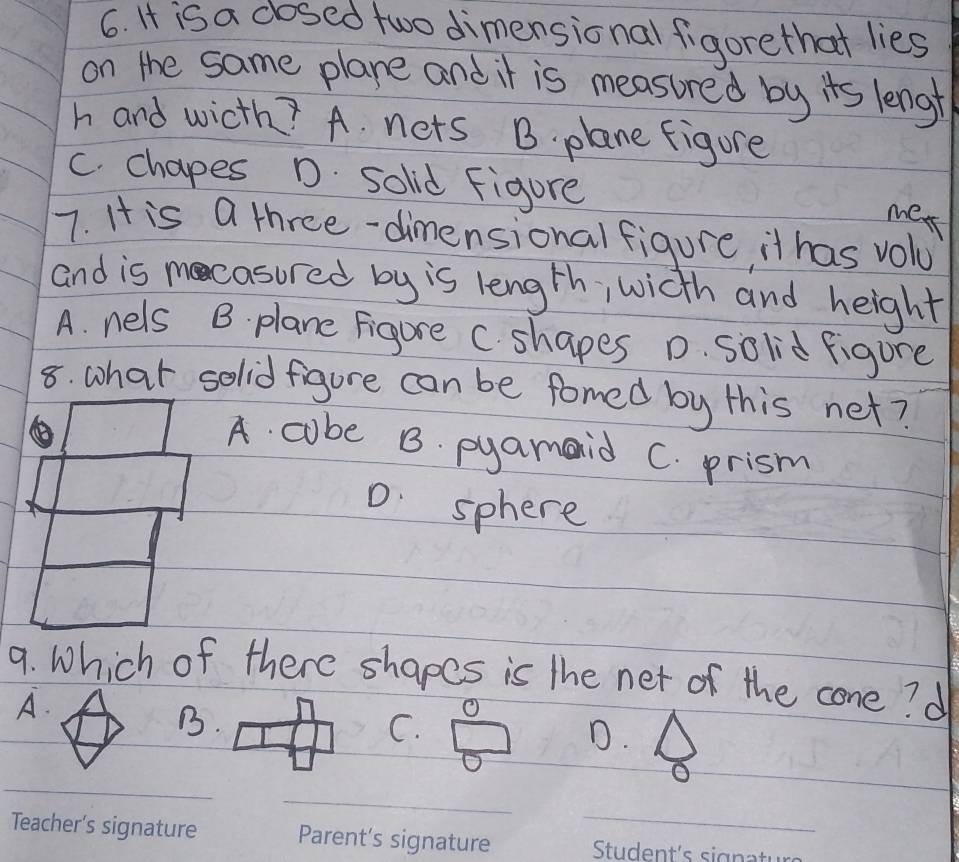 6. It is a closed two dimensional figorethat lies
on the same plane and it is measured by its lengt
h and wicth? A. nets B. plane figure
C. Chapes D. Solid Figure
7. It is a three-dimensional figure, it has volu
me
and is mecasured by is length, wicth and height
A. nels B. plane Figure C. shapes D. solid figure
8. what solid figure can be fomed by this net?
A. cube B. pyamaid C. prism
D. sphere
9. Which of there shapes is the net of the cone? d
A. B. C. D.
Teacher's signature Parent's signature Student's signature